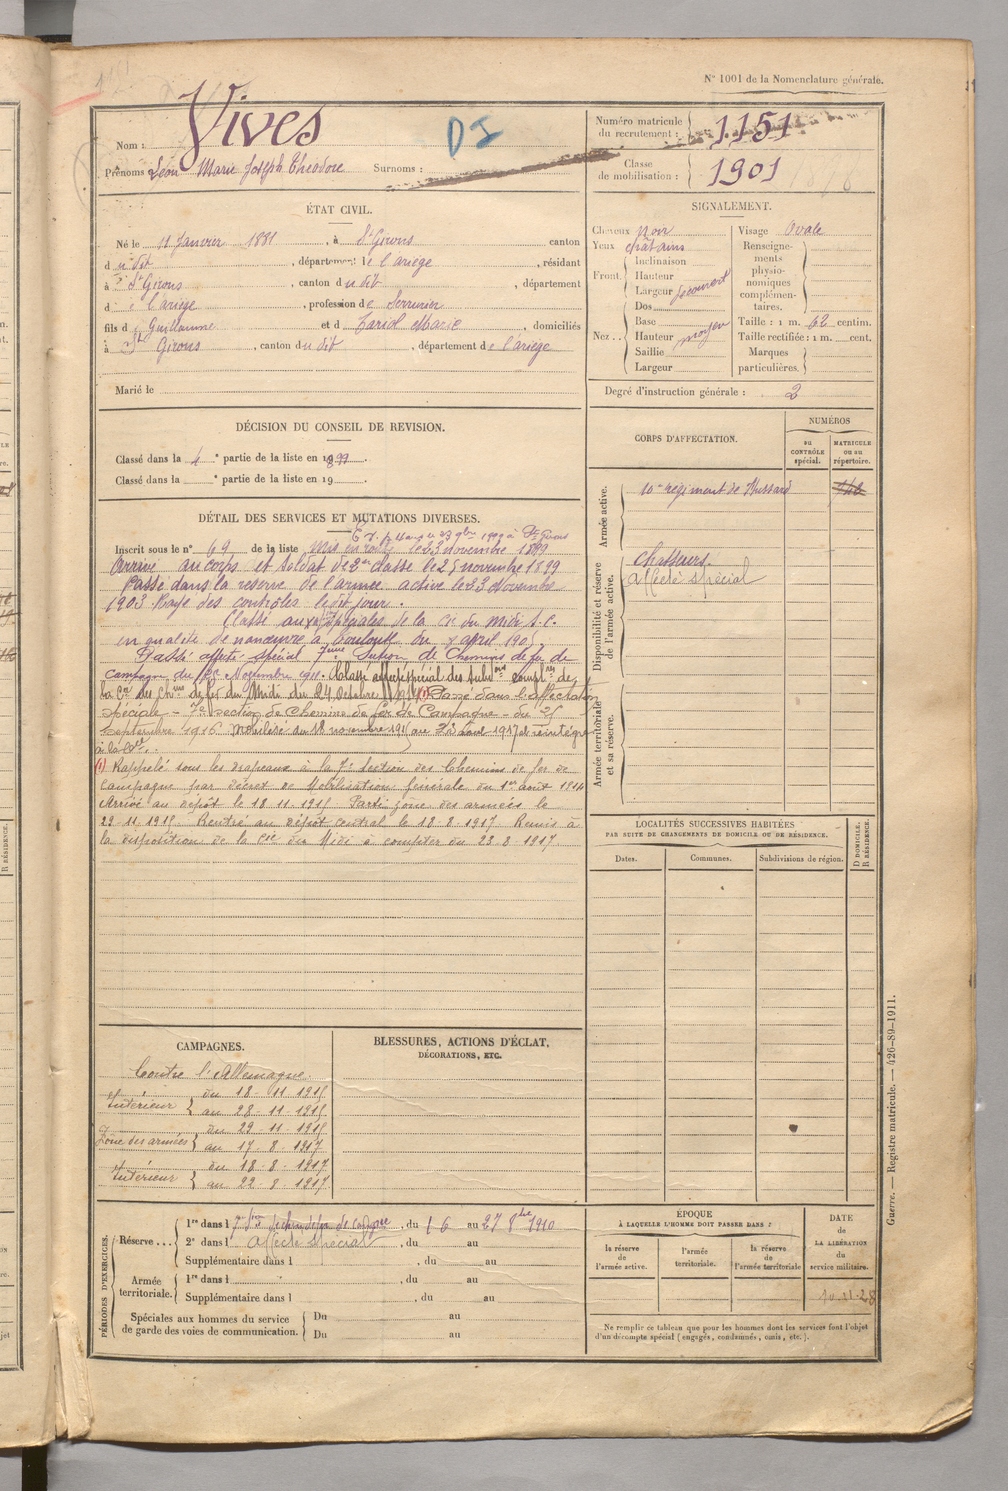 N° 1001 de la Nomenclature générale.
Nom : Vives
D I
Prénoms Léon Marie Joseph Théodore Surnoms :
Numéro matricule du recrutement : 1151
Classe de mobilisation : 1901
ÉTAT CIVIL.
Né le 11 Janvier 1881, à St Girons canton
du dit, département de l'ariège, résidant
à St Girons, canton du dit, département
de l'ariège, profession de Serrurier
fils de Guillaume et de Tariol Marie, domiciliés
à St Girons, canton du dit, département de l'ariège
Marié le
SIGNALEMENT.
Cheveux noir
Yeux châtains
Front. Inclinaison
Hauteur
Largeur découvert
Nez.. Dos
Base
Hauteur moyen
Saillie
Largeur
Visage Ovale
Renseignements physionomiques complémentaires.
Taille : 1 m. 62 centim.
Taille rectifiée : 1 m. cent.
Marques particulières.
Degré d'instruction générale : 2
DÉCISION DU CONSEIL DE REVISION.
Classé dans la 4e partie de la liste en 1899.
Classé dans la e partie de la liste en 19 .
DÉTAIL DES SERVICES ET MUTATIONS DIVERSES.
E.V. p. 4 ans le 23 9bre 1899 à St Girons
Inscrit sous le n° 69 de la liste Mis en route le 23 novembre 1899
Arrivé au corps et soldat de 2me classe le 25 novembre 1899
Passé dans la réserve de l'armée active le 23 Novembre
1903 Rayé des contrôles le dit jour.
Classé aux spéciales de la Cie du Midi s.c.
en qualité de manœuvre à Toulouse du 4 april 1905
Passé affecté spécial 7ème Section de Chemins de fer de
campagne du 25 Novembre 1911. Classé affecté spécial des subdons complres de
la Cie des Chins de fer du Midi du 24 Octobre 1914 (1) Passé dans l'affectation
spéciale - 7e section de Chemins de fer de Campagne - du 25
Septembre 1916 Mobilisé du 18 novembre 1915 au 23 août 1917 et réintégré
à la Cie.
(1) Rappelé sous les drapeaux à la 7e Section des Chemins de fer de
Campagne par décret de Mobilisation Générale du 1er août 1914
Arrivé au dépôt le 18 11 1915 Parti zone des armées le
29-11-1915 Rentré au dépôt central le 18-8-1917 Remis à
la disposition de la Cie du Midi à compter du 23-8-1917
CORPS D'AFFECTATION.
NUMÉROS
au CONTRÔLE spécial.
MATRICULE ou au répertoire.
Armée active.
10me régiment de Hussard
Disponibilité et réserve de l'armée active.
Chasseurs
affecté spécial
Armée territoriale et sa réserve.
LOCALITÉS SUCCESSIVES HABITÉES
PAR SUITE DE CHANGEMENTS DE DOMICILE OU DE RÉSIDENCE.
Dates.
Communes.
Subdivisions de région.
D DOMICILE. R RÉSIDENCE.
CAMPAGNES.
Contre l'Allemagne.
Intérieur du 18-11-1915
au 28-11-1915
Zone des armées du 29 11 1915
au 17-8-1917
Intérieur du 18-8-1917
au 22-8-1917
BLESSURES, ACTIONS D'ÉCLAT,
DÉCORATIONS, ETC.
PÉRIODES D'EXERCICES.
Réserve... 1re dans l 7e Son de chin de fer de campgne, du 16 au 27 8bre 1910
2e dans l affecté spécial, du au
Supplémentaire dans l , du au
Armée territoriale. 1re dans l , du au
Supplémentaire dans l , du au
Spéciales aux hommes du service de garde des voies de communication. Du au
Du au
ÉPOQUE
À LAQUELLE L'HOMME DOIT PASSER DANS :
la réserve de l'armée active.
l'armée territoriale.
la réserve de l'armée territoriale
DATE de LA LIBÉRATION du service militaire.
10-11-28
Ne remplir ce tableau que pour les hommes dont les services font l'objet
d'un décompte spécial (engagés, condamnés, omis, etc.).
Guerre. — Registre matricule. — 426-89-1911.